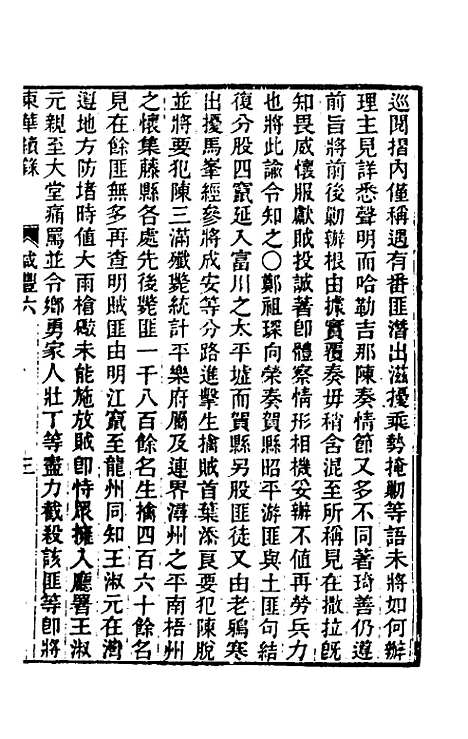 巡閱摺內僅稱遇有番匪潛出滋擾乘勢掩勦等語未將如何辦
理主見詳悉聲明而哈勒吉那陳奏情節又多不同著琦善仍遵
前旨將前後勦辦根由據實覆奏毋稍含混至所稱見在撒拉旣
知畏威懷服獻賊投誠著卽體察情形相機妥辦不値再勞兵力
也將此諭令知之○鄭祖琛向榮奏賀縣昭平游匪與土匪句結
復分股四竄延入富川之太平墟而賀縣另股匪徒又由老鴉寒
出擾馬峯經參將成安等分路進擊生擒賊首葉添良要犯陳脫
並將要犯陳三滿殲斃統計平樂府屬及連界潯州之平南梧州
之懷集藤縣各處先後斃匪一千八百餘名生擒四百六十餘名
見在餘匪無多再查明賊匪由明江竄至龍州同知王淑元在灣
逗地方防堵時値大雨槍礮未能施放賊卽恃眾擁入廳署王淑
元親至大堂痛罵並令鄉勇家人壯丁等盡力截殺該匪等卽將
東華續錄 咸豐六 三